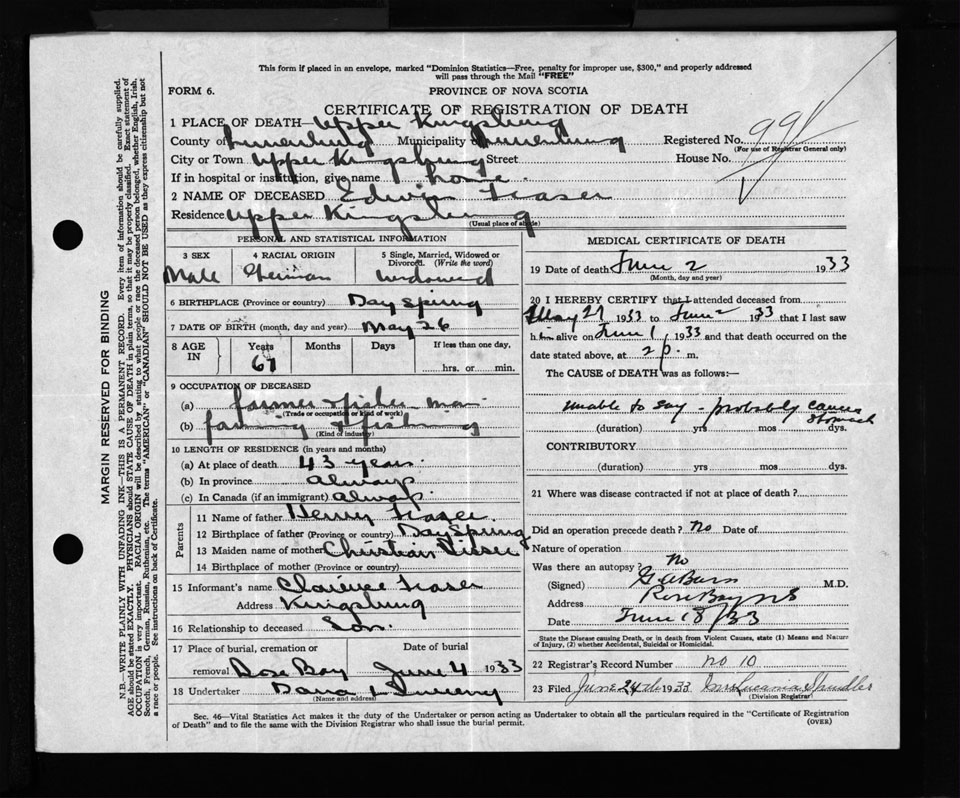 This form if placed in an envelope, marked "Dominion Statistics—Free, penalty for improper use, $300," and properly addressed
will pass through the Mail "FREE"
FORM 6.
PROVINCE OF NOVA SCOTIA
CERTIFICATE OF REGISTRATION OF DEATH
1 PLACE OF DEATH—Upper Kingsburg
County of Lunenburg Municipality of Lunenburg Registered No. 991
(For use of Registrar General only)
City or Town Upper Kingsburg Street House No.
If in hospital or institution, give name home
2 NAME OF DECEASED Edwin
Residence Upper Kingsburg
(Usual place of abode)
PERSONAL AND STATISTICAL INFORMATION
3 SEX 4 RACIAL ORIGIN 5 Single, Married, Widowed or
Divorced. (Write the word)
Male German widowed
6 BIRTHPLACE (Province or country) Day Spring
7 DATE OF BIRTH (month, day and year) May 26
8 AGE IN Years Months Days If less than one day,
67 hrs. or min.
9 OCCUPATION OF DECEASED
(a) farmer & fisher man
(Trade or occupation or kind of work)
(b) farming & fishing
(Kind of industry)
10 LENGTH OF RESIDENCE (in years and months)
(a) At place of death 43 years
(b) In province always
(c) In Canada (if an immigrant) always
Parents
11 Name of father Henry
12 Birthplace of father (Province or country) DaySpring
13 Maiden name of mother Christian
14 Birthplace of mother (Province or country)
15 Informant's name Clarence
Address Kingsburg
16 Relationship to deceased Son.
17 Place of burial, cremation or Date of burial
removal Rose Bay June 4 1933
18 Undertaker
(Name and address)
MEDICAL CERTIFICATE OF DEATH
19 Date of death June 2 1933
(Month, day and year)
20 I HEREBY CERTIFY that I attended deceased from
May 27 1933 to June 2 1933 that I last saw
him alive on June 1 1933 and that death occurred on the
date stated above, at 2 p. m.
The CAUSE of DEATH was as follows:—
unable to say - probably cancer stomach
(duration) yrs mos dys.
CONTRIBUTORY
(duration) yrs mos dys.
21 Where was disease contracted if not at place of death?
Did an operation precede death? No Date of
Nature of operation
Was there an autopsy? No
(Signed) M.D.
Address Rose Bay NS
Date June 8/33
State the Disease causing Death, or in death from Violent Causes, state (1) Means and Nature
of Injury, (2) whether Accidental, Suicidal or Homicidal.
22 Registrar's Record Number No 10
23 Filed June 24th 1933
(Division Registrar)
Sec. 46—Vital Statistics Act makes it the duty of the Undertaker or person acting as Undertaker to obtain all the particulars required in the "Certificate of Registration
of Death" and to file the same with the Division Registrar who shall issue the burial permit. (OVER)
MARGIN RESERVED FOR BINDING
N.B.—WRITE PLAINLY WITH UNFADING INK—THIS IS A PERMANENT RECORD. Every item of information should be carefully supplied.
AGE should be stated EXACTLY. PHYSICIANS should STATE CAUSE OF DEATH in plain terms, so that it may be properly classified. Exact statement of
OCCUPATION is very important. RACIAL ORIGIN will be described by stating to what people or race the deceased person belonged, whether English, Irish,
Scotch, French, German, Russian, Ruthenian, etc. The terms "AMERICAN" or "CANADIAN" SHOULD NOT BE USED as they express citizenship but not
a race or people. See instructions on back of Certificate.